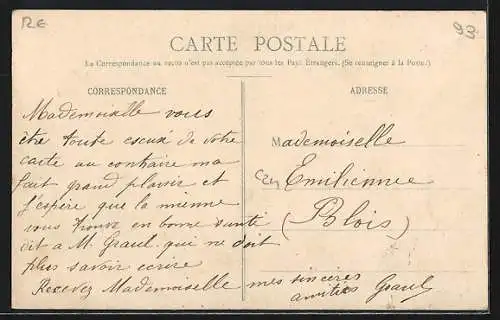 RE
93
CARTE POSTALE
La Correspondance au recto n'est pas acceptée par tous les Pays Etrangers. (Se renseigner à la Poste.)
CORRESPONDANCE
Mademoiselle vous
être toute escusé de votre
carte au contraire ma
fait grand plaisir et
j'espère que la mienne
vous trouve en bonne santé
dit a M. Graul. qui ne doit
plus savoir ecrire
Recevez Mademoiselle mes sincères
amitiés Graul
ADRESSE
Mademoiselle
Emilienne
(Blois)